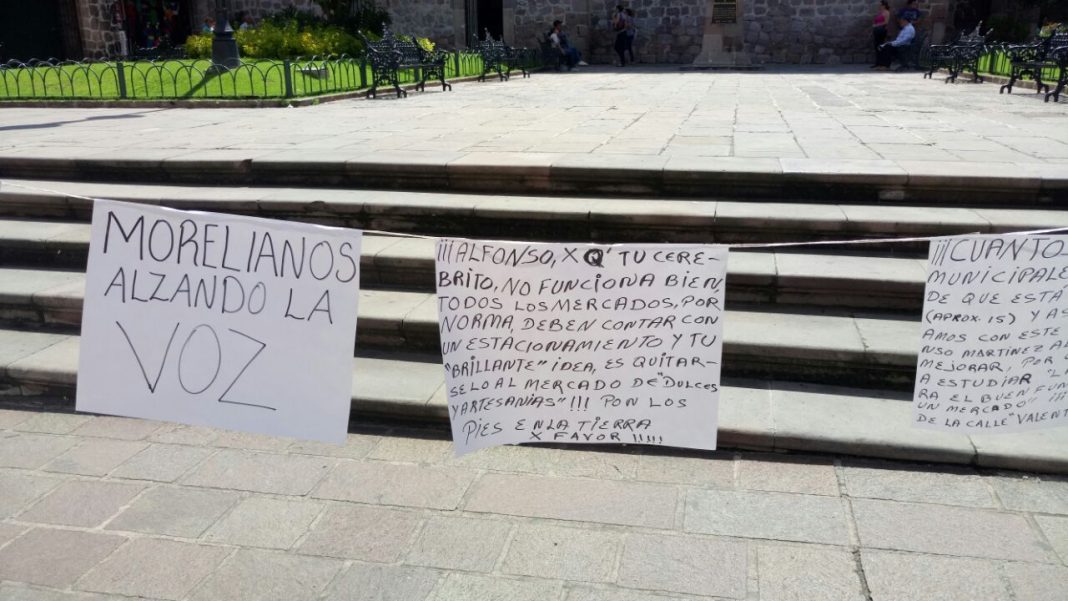 MORELIANOS
ALZANDO LA
VOZ
¡¡¡ALFONSO, X Q' TU CERE-
BRITO, NO FUNCIONA BIEN,
TODOS LOS MERCADOS, POR
NORMA, DEBEN CONTAR CON
UN ESTACIONAMIENTO Y TU
"BRILLANTE" IDEA, ES QUITAR-
SELO AL MERCADO DE "DULCES
Y ARTESANÍAS"!!! PON LOS
PIES EN LA TIERRA
X FAVOR !!!!!
¡¡¡CUANTO
MUNICIPALE
DE QUE ESTÁ
(APROX. 15) Y AS
AMOS CON ESTE
NSO MARTÍNEZ AL
MEJORAR, POR
A ESTUDIAR "L
RA EL BUEN FUN
UN MERCADO" ¡¡¡
DE LA CALLE "VALENT